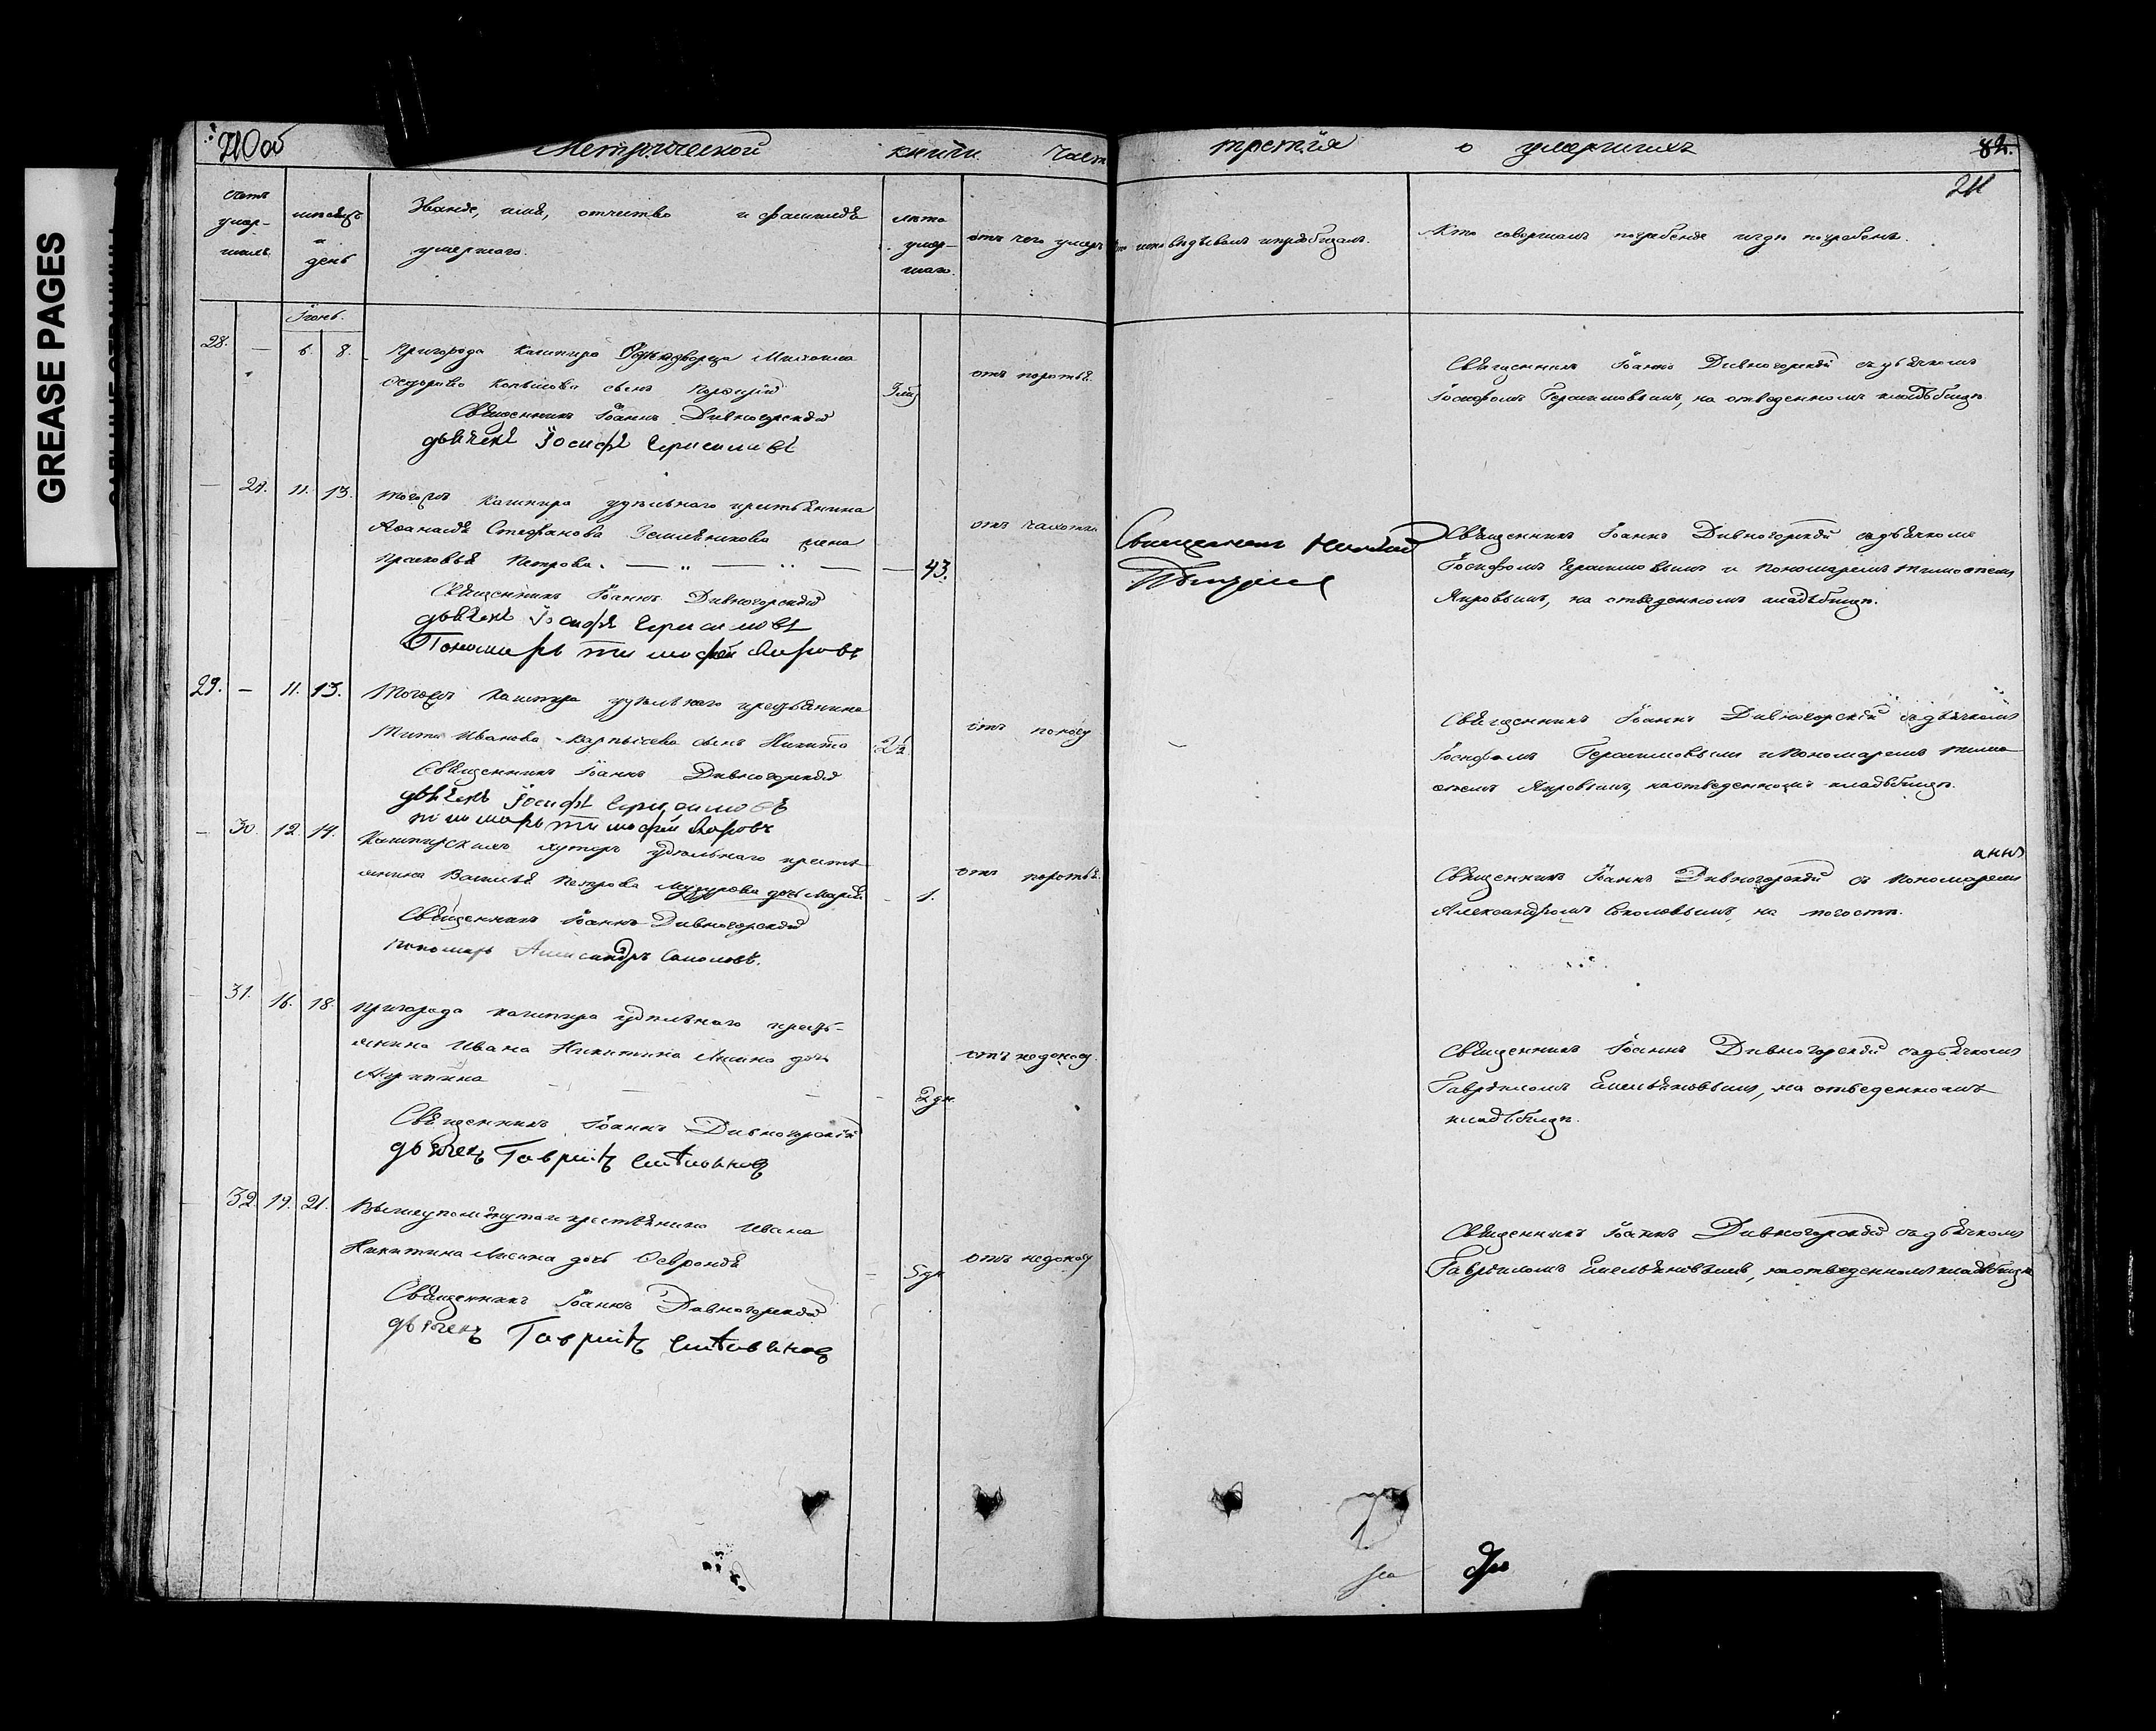 GREASE PAGES
210об
Метрической книги часть третія о умершихъ
82.
211
Счетъ умер-шихъ.
мѣсяцъ и день
Званіе, имя, отчество и фамилія умершаго.
лѣта умер-шаго.
отъ чего умеръ
исповѣдывалъ и пріобщалъ.
Кто совершалъ погребеніе и гдѣ погребенъ.
Іюнь.
28. — 6. 8.
Пригорода Кашпира Однодворца Михаила
сынъ Порфирій
3 мѣ
Священникъ Іоаннъ Дивногорскій
дьячекъ Іосифъ Герасимовъ
Священникъ Іоаннъ Дивногорскій съ дьячкомъ
Іосифомъ Герасимовымъ, на отведенномъ кладбищѣ.
— 29. 11. 13.
Тогожъ Кашпира удѣльнаго крестьянина
Афанасія Стефанова жена
Прасковья Петрова. — 43.
отъ чахотки
Священникъ Іоаннъ Дивногорскій
дьячекъ Іосифъ Герасимовъ
Пономарь Тимофей Аировъ
Священникъ
Священникъ Іоаннъ Дивногорскій съ дьячкомъ
Іосифомъ Герасимовымъ и Пономаремъ Тимофеемъ
Аировымъ, на отведенномъ кладбищѣ.
29. — 11. 13.
Тогожъ Кашпира удѣльнаго крестьянина
Тита Иванова сынъ Никита
отъ поносу
Священникъ Іоаннъ Дивногорскій
дьячекъ Іосифъ Герасимовъ
пономарь Тимофей Аировъ
Священникъ Іоаннъ Дивногорскій съ дьячкомъ
Іосифомъ Герасимовымъ и Пономаремъ Тимо-
феемъ Аировымъ, на отведенномъ кладбищѣ.
— 30. 12. 14.
Кашпирскихъ хуторъ удѣльнаго кресть-
янина Василья Петрова дочь Марія
1.
Священникъ Іоаннъ Дивногорскій
пономарь Александръ Соколовъ.
Священникъ Іоаннъ Дивногорскій съ Пономаремъ
Александромъ Соколовымъ, на погостѣ.
31. 16. 18.
Пригорода Кашпира удѣльнаго кресть-
янина Ивана Никитина Лисина дочь
Акулина
2 дн.
отъ недоносу.
Священникъ Іоаннъ Дивногорскій
дьячекъ Гавріилъ Емельяновъ
Священникъ Іоаннъ Дивногорскій съ дьячкомъ
Гавріиломъ Емельяновымъ, на отведенномъ
кладбищѣ.
32. 19. 21.
Вышеупомянутаго крестьянина Ивана
Никитина Лисина дочь Февронія
5 дн
отъ недоносу
Священникъ Іоаннъ Дивногорскій
дьячекъ Гавріилъ Емельяновъ
Священникъ Іоаннъ Дивногорскій съ дьячкомъ
Гавріиломъ Емельяновымъ, на отведенномъ кладбищѣ